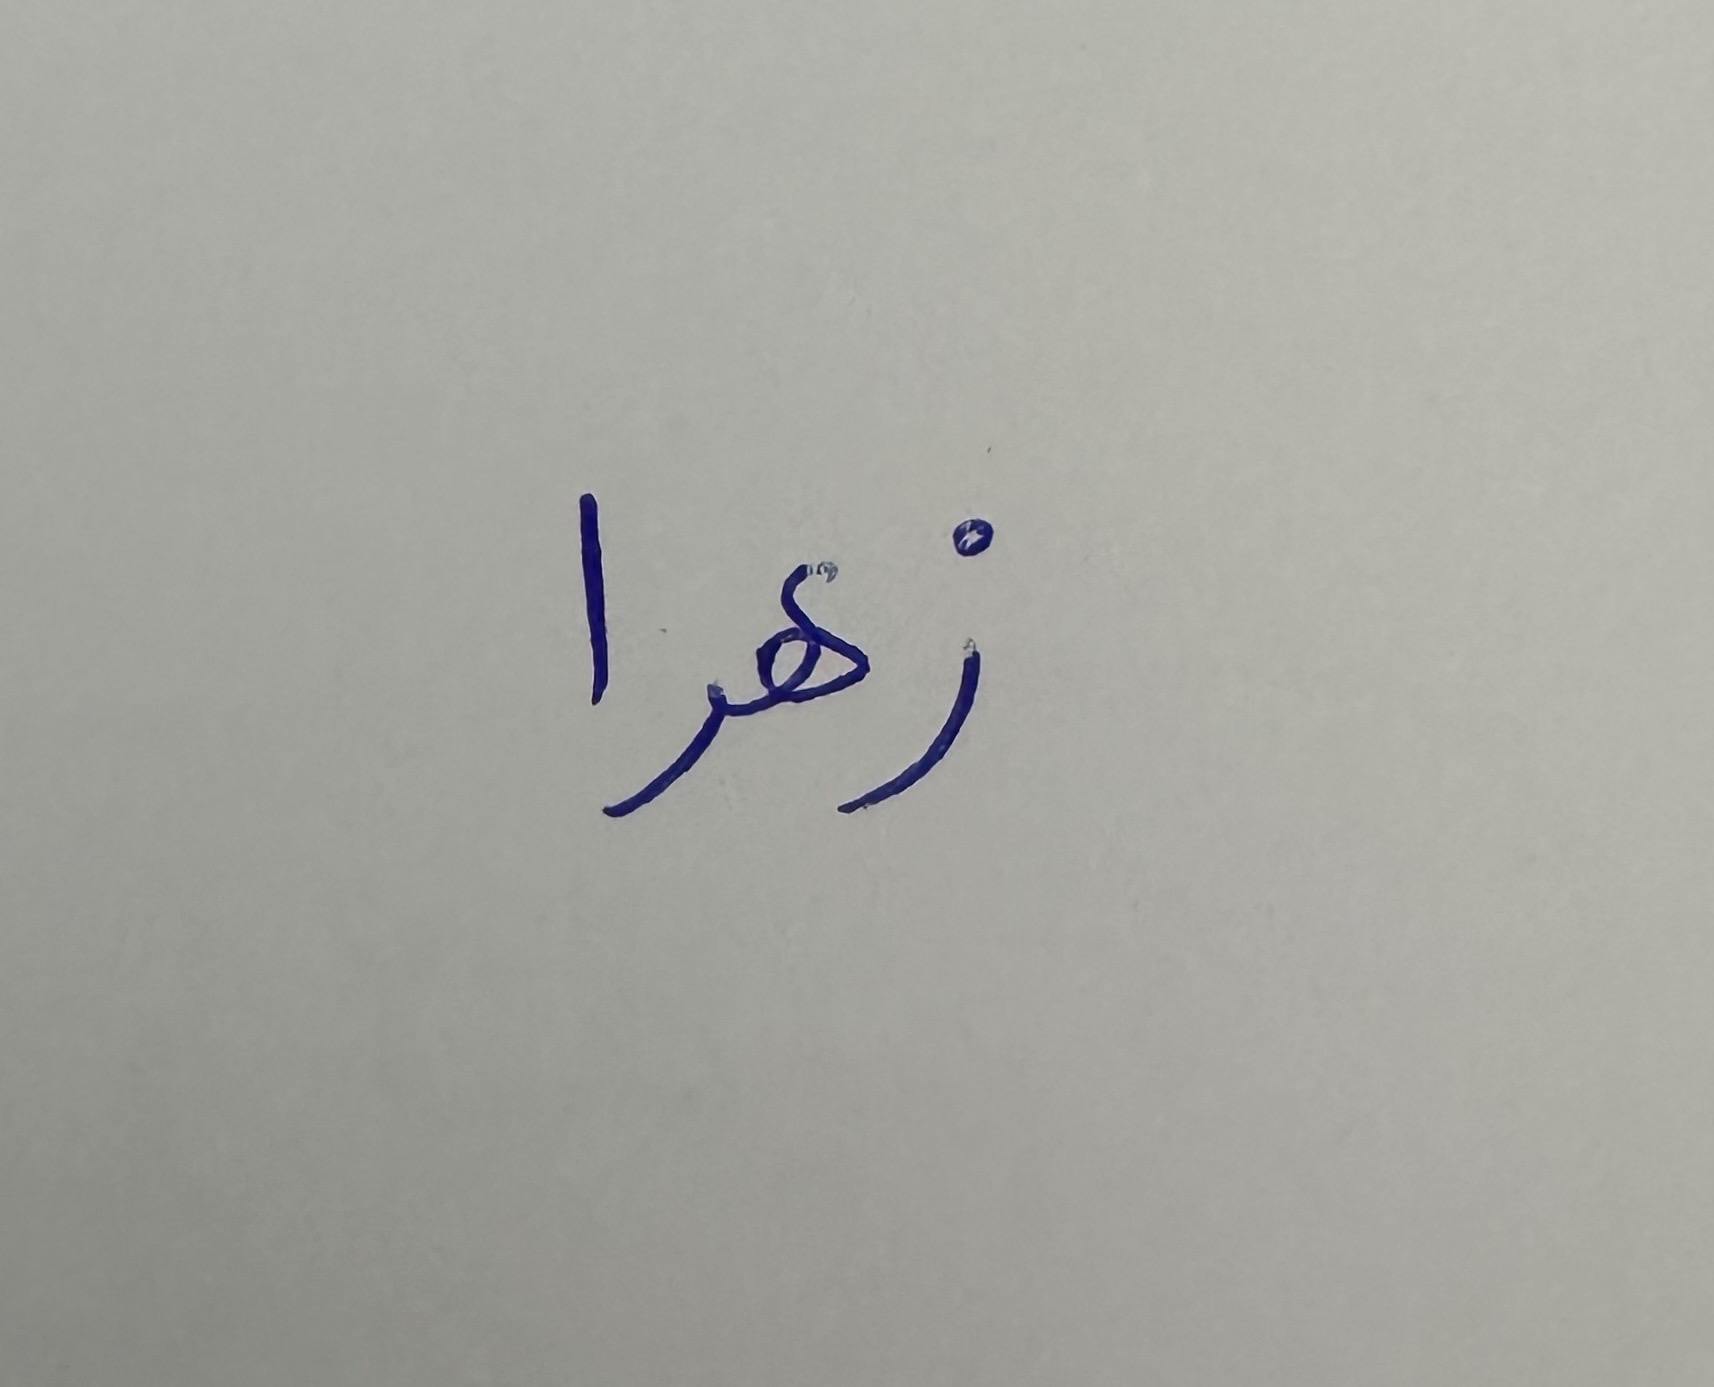 زهرا